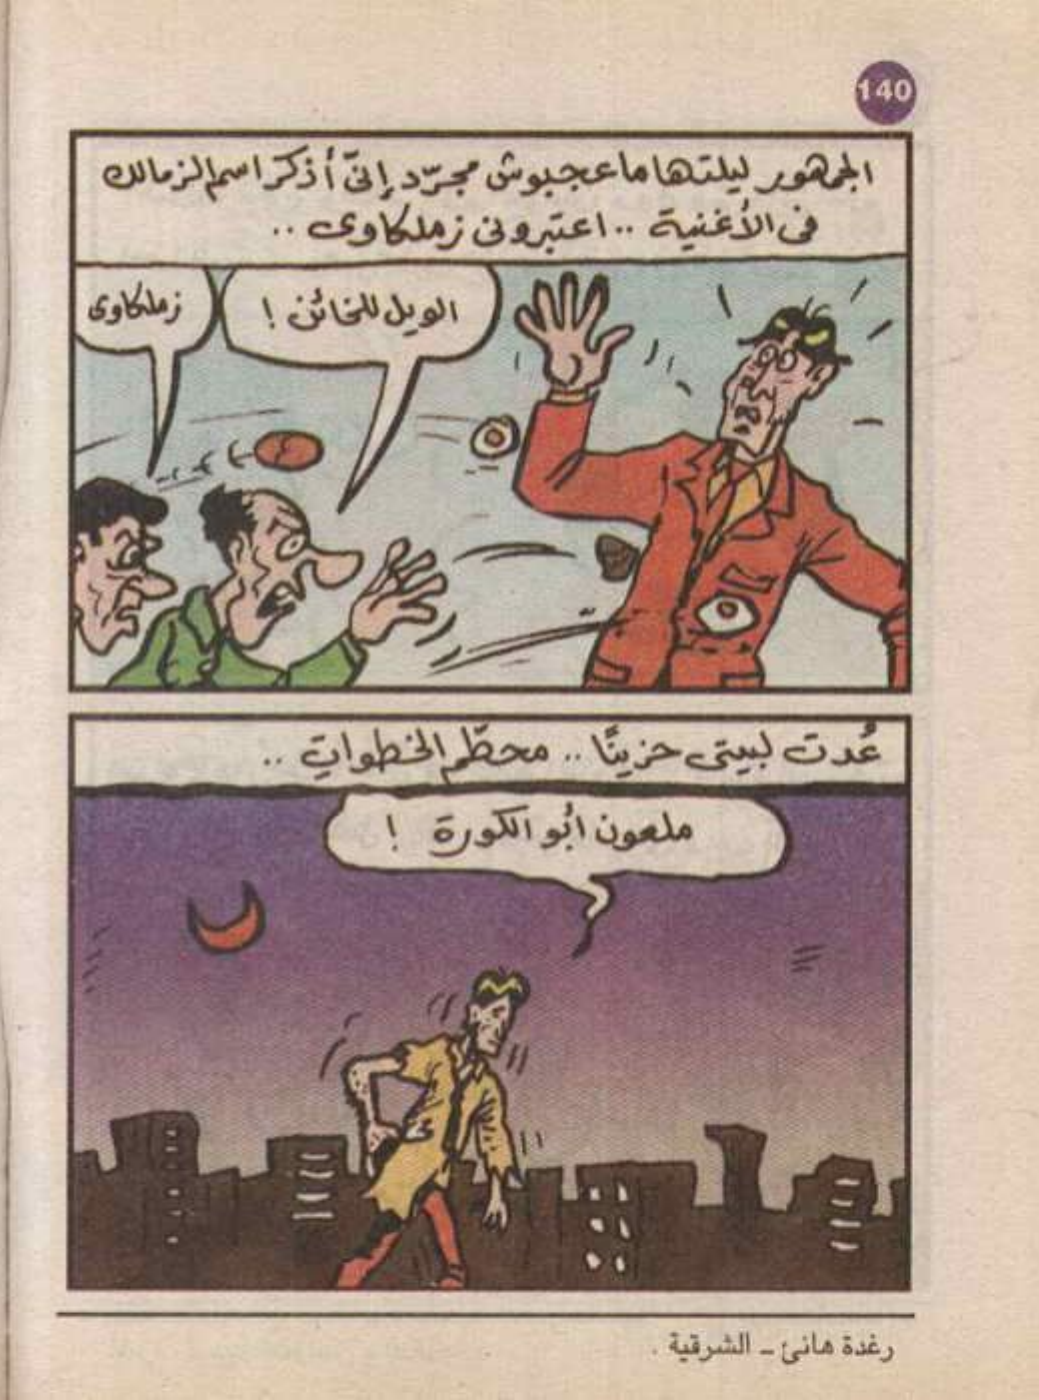 140
الجمهور ليلتها ماعجبوش مجرّد إنّى أذكر اسم الزمالك
فى الأغنية .. اعتبرونى زملكاوى ..
الويل للخائن !
زملكاوى
عُدت لبيتى حزينًا .. محطّم الخطواتِ ..
ملعون أبُو الكورة !
رغدة هانئ - الشرقية .